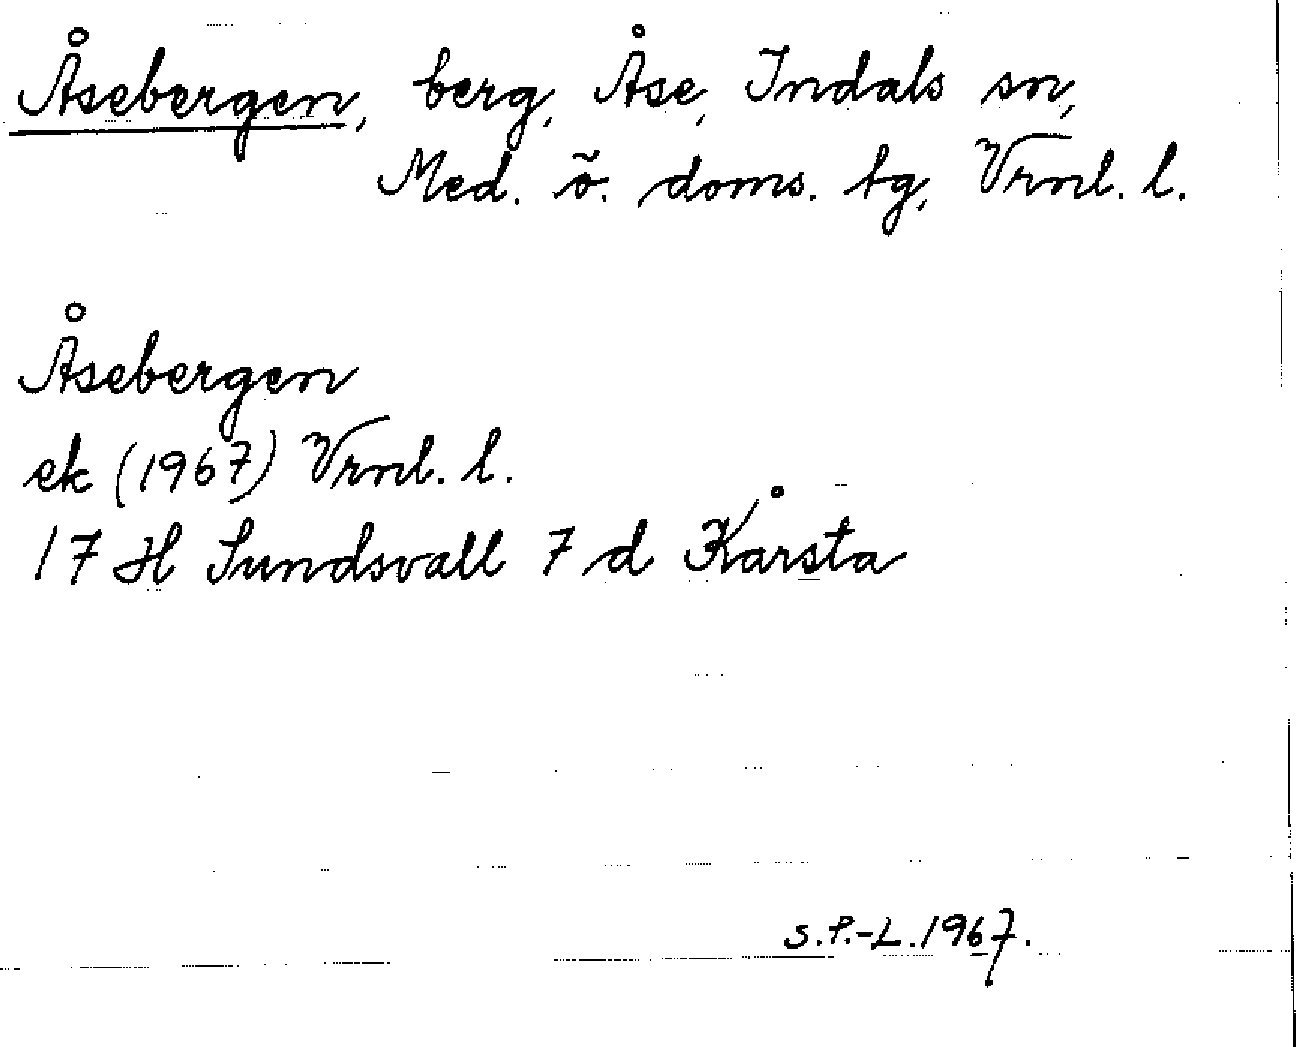 Åsebergen, berg, Åse, Indals sn,
Med. ö. doms. tg, Vrnl. l.
Åsebergen
ek (1967) Vrnl. l.
17 H Sundsvall 7 d Kårsta
S.P.-L. 1967.